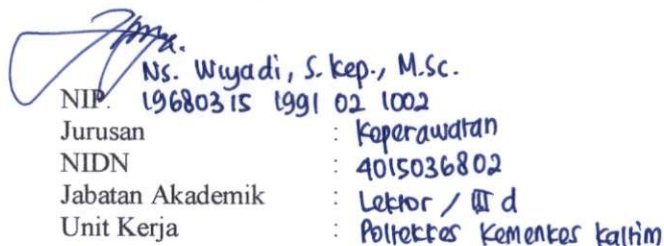 Ns. Wiyadi, S. Kep., M.Sc.
NIP. 19680315 1991 02 1002
Jurusan : Keperawatan
NIDN : 4015036802
Jabatan Akademik : Lektor / III d
Unit Kerja : Poltekkes Kemenkes Kaltim